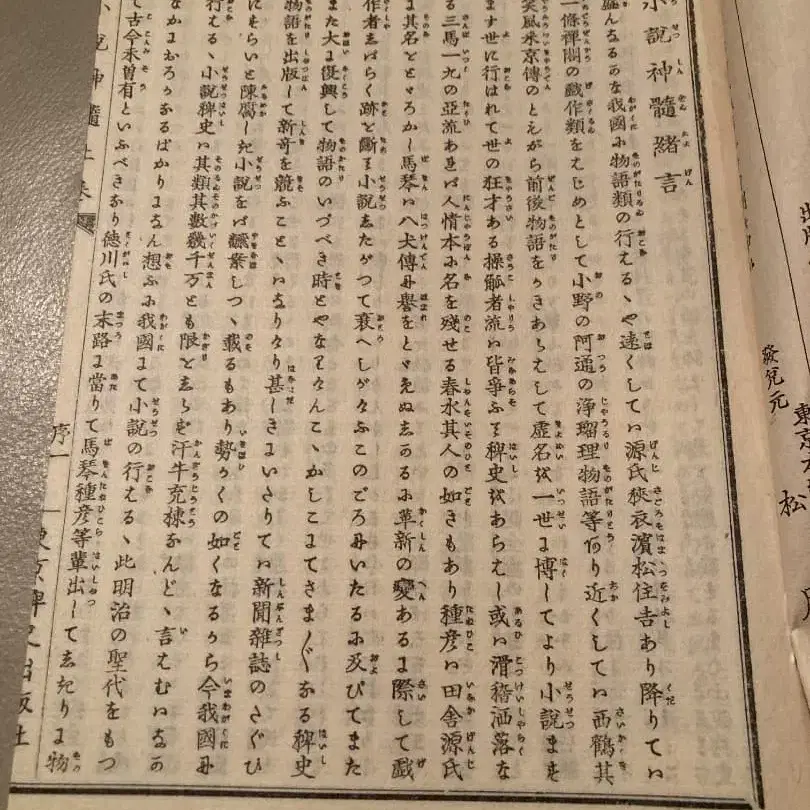 小説神髓緒言
盛んなるかな我國に物語類の行はるゝや遠くしてハ源氏狹衣濱松住吉あり降りてハ
一條禪閤の戯作類をはじめとして小野の阿通の浄瑠璃物語等あり近くしてハ西鶴其
笑風来京傳のともがら前後物語をかきあらはして虚名を一世に博してより小説ます
ます世に行はれて世の狂才ある操觚者流ハ皆爭ふて稗史をあらはし或ハ滑稽洒落な
る三馬一九の亜流あれバ人情本に名を殘せる春水其人の如きもあり種彦ハ田舎源氏
に其名をとゞろかし馬琴ハ八犬傳に譽をとゞめぬしかるに革新の變あるに際して戯
作者しばらく跡を斷ち小説したがつて衰へしがけふこのごろにいたるに及びてまた
また大に復興して物語のいづべき時とやなりけんこゝかしこにてさま〲なる稗史
物語を出版して新奇を競ふことゝハなりけり甚しきにいたりてハ新聞雜誌のたぐひ
にすらいと陳腐しき小説をバ飜案しつゝ載るもあり勢かくの如くなるから今我國に
行るゝ小説稗史ハ其類其數幾千万とも限をしらず汗牛充棟なんどゝ言はむハなか
なかにおろかなるばかりになん想ふに我國にて小説の行るゝ此明治の聖代をもつ
て古今未曾有といふべきなり徳川氏の末路に當りて馬琴種彦等輩出してしきりに物
小説神髓上卷
序一
東京稗史出版社
發兌元
東京
松